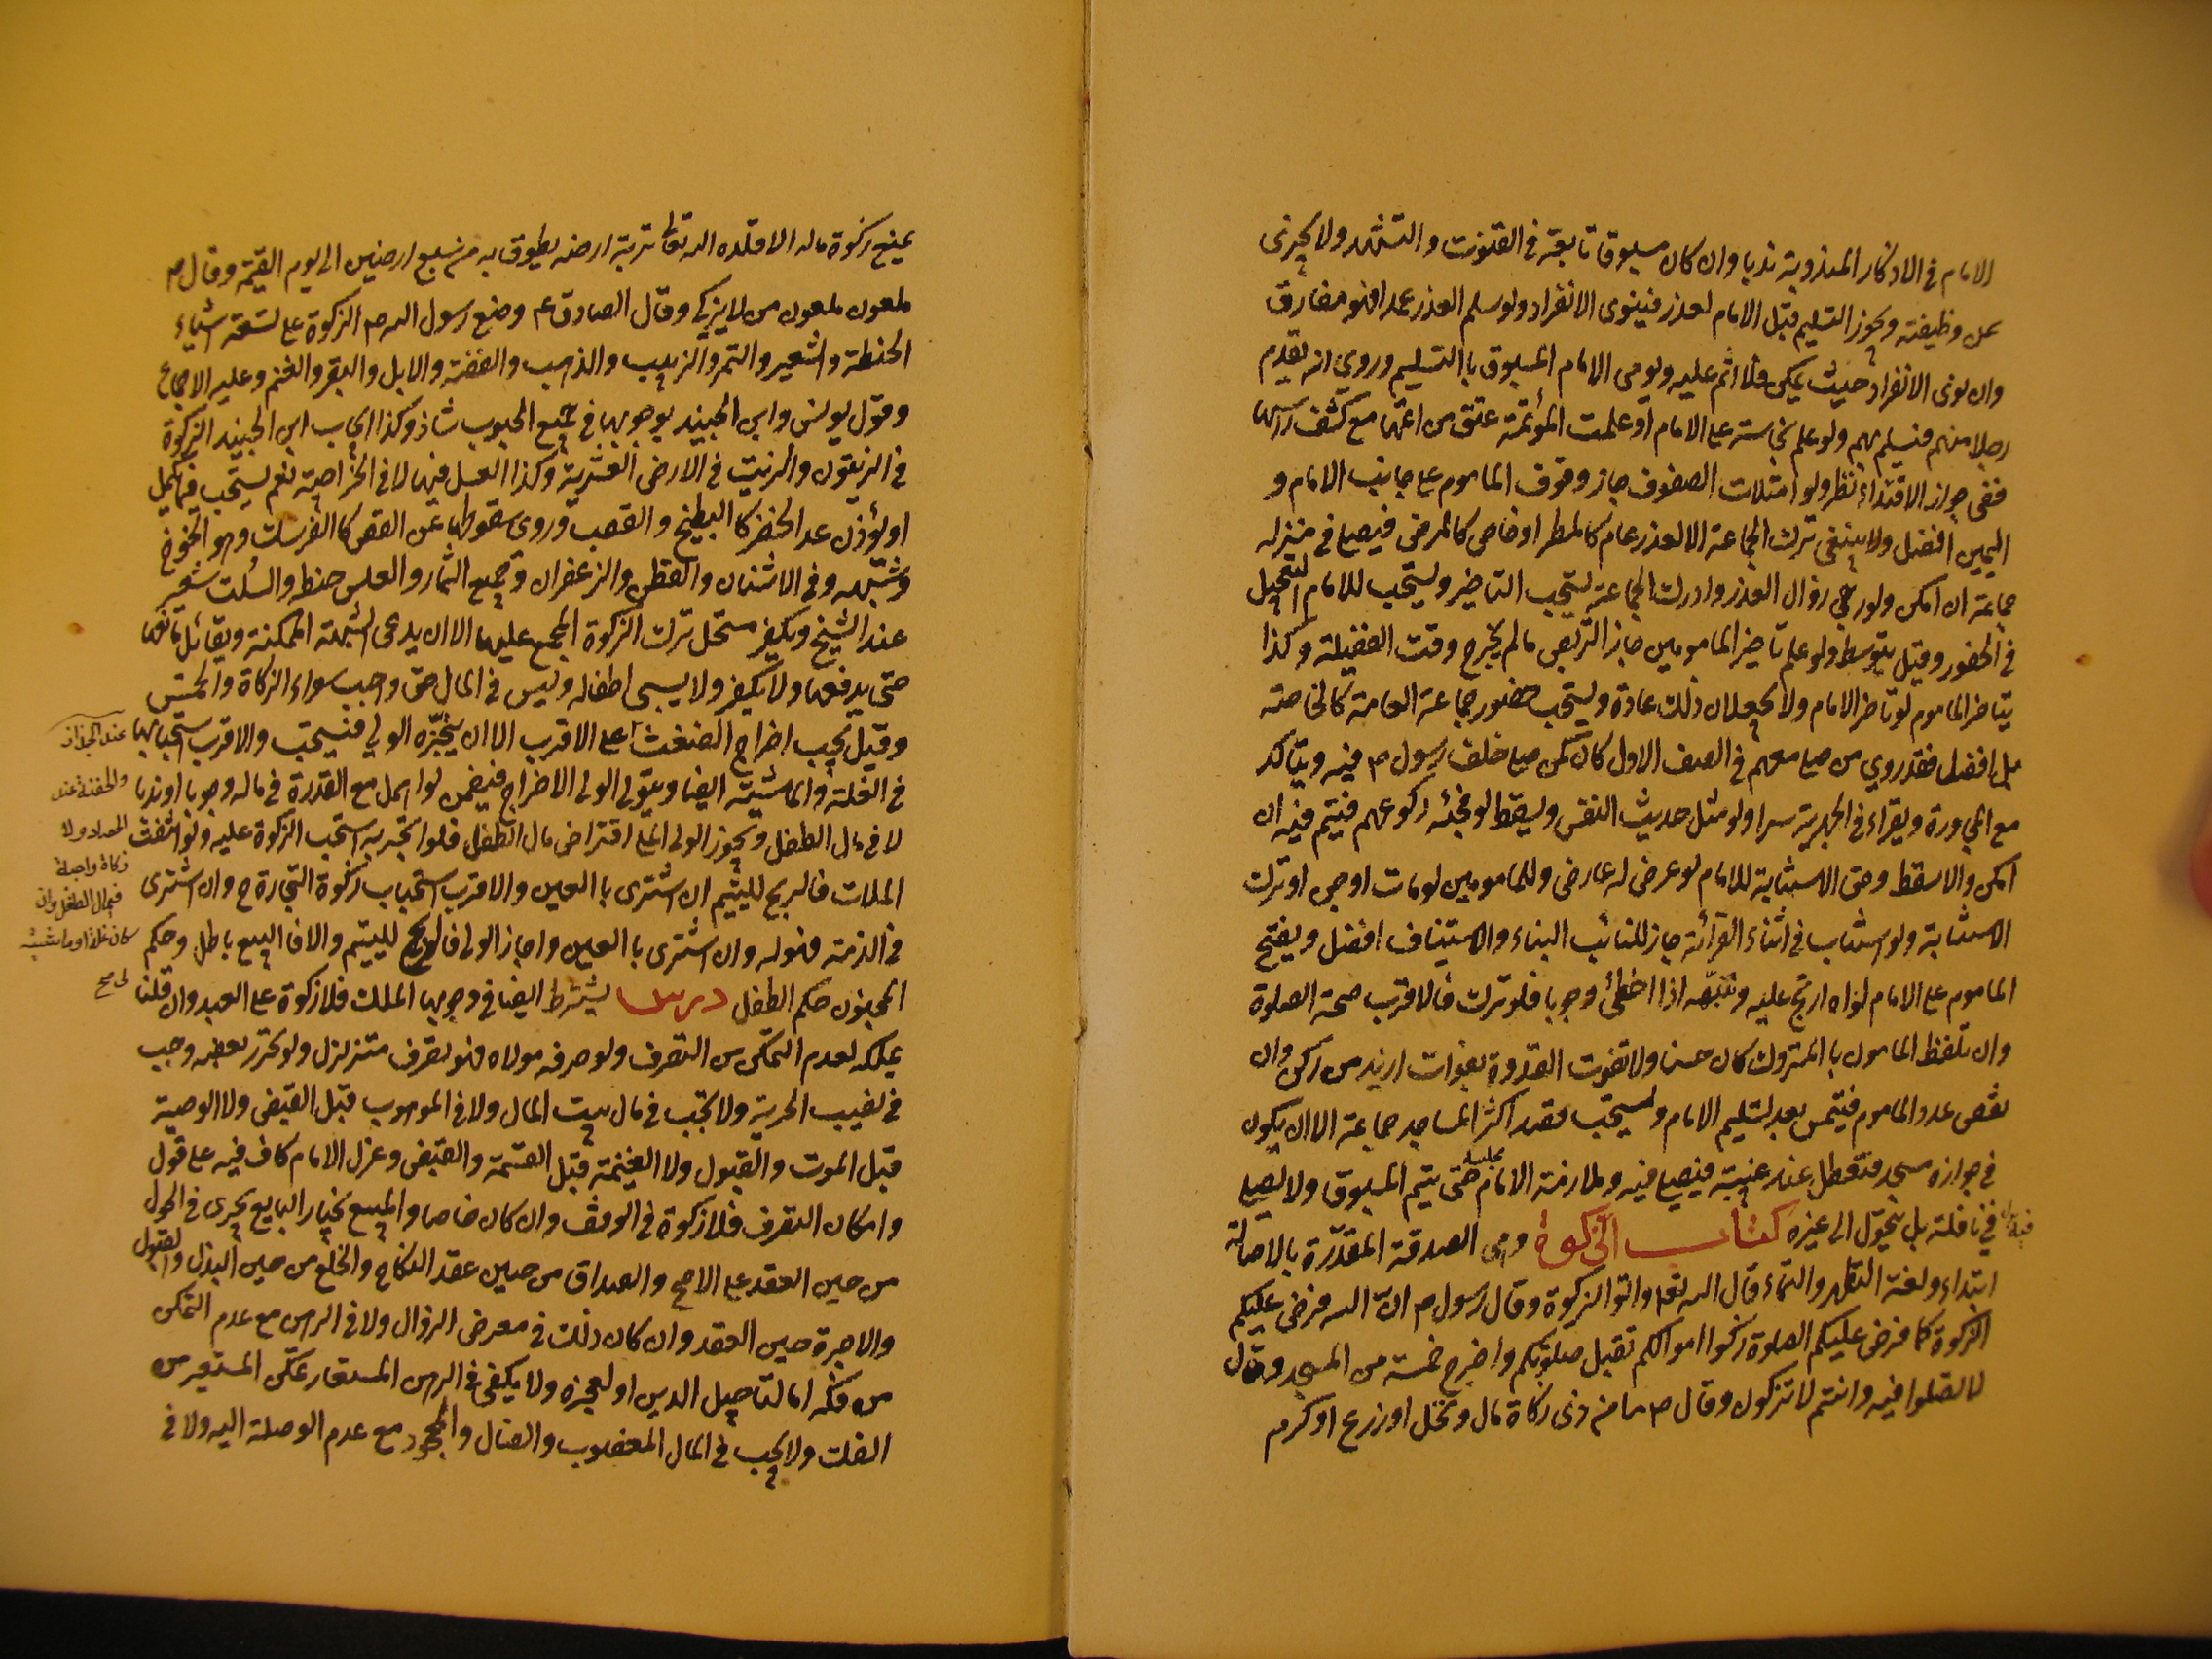 الامام في الاذكار المندوبة ندبا وان كان مسبوقا تابعه في القنوت والتشهد ولا يجزى
عن وظيفته ويجوز التسليم قبل الامام لعذر فينوى الانفراد ولو سلم لعذر عمدا فهو مفارق
وان نوى الانفراد حيث يمكن فلا اثم عليه ويومى الامام المسبوق بالتسليم وروى انه يقدم
رجلا منهم فيسلم بهم ولو علم نجاسته على الامام او علمت المؤتمة عتق من امتها مع كشف راسها
ففى جواز الاقتداء نظر ولو امتلات الصفوف جاز وقوف الماموم على جانب الامام و
اليمين افضل ولا ينبغى ترك الجماعة الا لعذر عام كالمطر او خاص كالمرض فيصلى في منزله
جماعة ان امكن ولو رجى زوال العذر وادرك الجماعة يستحب التاخير ويستحب للامام التعجيل
في الحضور وقيل يتوسط ولو علم تاخير المامومين جاز التربص ما لم يخرج وقت الفضيلة وكذا
يتناظر الماموم لو تاخر الامام ولا يجعلان ذلك عادة ويستحب حضور جماعة العامة كالخاصة
بل افضل فقد روي من صلى معهم في الصف الاول كان كمن صلى خلف رسول ص فيه ويتاكد
مع المجاورة ويقراء في الجهرية سرا ولو مثل حديث النفس ويسقط لو فجئه ركوعهم فيتم فيه ان
امكن والا سقط وحق الاستنابة للامام لو عرض له عارض وللمامومين لو مات او جن او ترك
الاستنابة ولو استناب في اثناء القرائة جاز للنائب البناء والاستيناف افضل ويفتح
الماموم على الامام لو ارتج عليه وينبهه اذا اخطئ وجوبا فلو ترك فالاقرب صحة الصلوة
وان تلفظ المامون با المتروك كان حسنا ولا تفوت القدوة بفوات ازيد من ركن وان
نقص عدد الماموم فيتمن بعد تسليم الامام ويستحب قصد اكثر المساجد جماعة الا ان يكون
في جواره مسجد فتعطل عند غيبته فيصلى فيه وملازمة الامام مجلسه حتى يتم المسبوق ولا يصلى
في نافلة بل يتحول الى غيره كتاب الزكوة وهي الصدقة المقدرة بالاصالة
ابتداء ولغة التطهر والنماء قال الله تعا واتوا الزكوة وقال رسول ص ان الله فرض عليكم
الزكوة كما فرض عليكم الصلوة زكوا اموالكم تقبل صلوتكم واخرج خمسة من المسجد وقال
لا تصلوا فيه وانتم لا تزكون وقال ص ما من ذى زكاة مال ونخل او زرع او كرم
يمنع زكوة ماله الا قلده الله تعا تربة ارضه يطوق به من سبع ارضين الى يوم القيمة وقال ص
ملعون ملعون من لا يزكي وقال الصادق ع وضع رسول الله ص الزكوة على تسعة اشياء
الحنطة والشعير والتمر والزبيب والذهب والفضة والابل والبقر والغنم وعليه الاجماع
وقول يونس وابن الجنيد بوجوبها في جميع الحبوب شاذ وكذا ايجاب ابن الجنيد الزكوة
في الزيتون والزيت في الارض العشرية وكذا العسل فيها لا في الخراجية نعم يستحب فيما يكال
او يوزن عدا الخضر كا البطيخ والقصب وروى سقوطها عن الغض كا الفرسك وهو الخوخ
وشبهه وفي الاشنان والقطن والزعفران وجميع الثمار والعلس حنطه والسلت شعير
عند الشيخ ويكفر مستحل ترك الزكوة المجمع عليها الا ان يدعى الشبهة الممكنة ويقاتل مانعها
حتى يدفعها ولا يكفر ولا يسبى اطفاله وليس في المال حق واجب سواء الزكاة والخمس
وقيل يجب اخراج الضغث على الاقرب الا ان يخبره الولي فيستحب والاقرب استحبابها
في الغلة والماشية ايضا ويتولى الولى الاخراج فيضمن لو اهمل مع القدرة في ماله وجوبا او ندبا
لا في مال الطفل ويجوز الولى الملى اقتراض مال الطفل فلو اتجر به استحب الزكوة عليه ولو انتفت
الملات فالربح لليتيم ان اشترى با العين والاقرب استحباب زكوة التجارة ح وان اشترى
في الذمة فهو له وان اشترى با العين واجاز الولى فالربح لليتيم والا فا البيع باطل وحكم
المجنون حكم الطفل درس يشترط ايضا في وجوبها الملك فلا زكوة على العبد وان قلنا
بملكه لعدم التمكن من التصرف ولو صرفه مولاه فهو تصرف متزلزل ولو تحرر بعضه وجب
في نصيب الحرية ولا تجب في مال بيت المال ولا في الموهوب قبل القبض ولا الوصية
قبل الموت والقبول ولا الغنيمة قبل القسمة والقبض وعزل الامام كاف فيه على قول
وامكان التصرف فلا زكوة في الوقف وان كان خاصا والمبيع بخيار البايع يجرى في الحول
من حين العقد على الاصح والصداق من حين عقد النكاح والخلع من حين البذل والقبول
والاجرة حين العقد وان كان ذلك في معرض الزوال ولا في الرهن مع عدم التمكن
من فكه اما لتاجيل الدين او لعجزه ولا يكفى في الرهن المستعار تمكن المستعير من
الفك ولا يجب في المال المغصوب والضال والمجحود مع عدم الوصلة اليه ولا في
عند الجذاذ
والحفنة عند
الحصاد ولا
زكاة واجبة
في مال الطفل وان
كان غلة او ماشية